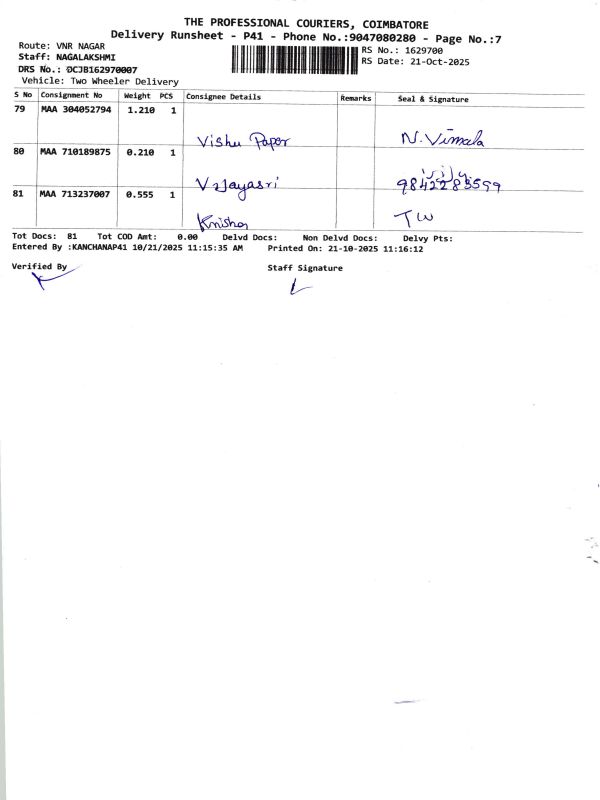 THE PROFESSIONAL COURIERS, COIMBATORE
Delivery Runsheet - P41 - Phone No.:9047080280 - Page No.:7
Route: VNR NAGAR RS No.: 1629700
Staff: NAGALAKSHMI RS Date: 21-Oct-2025
DRS No.: DCJB162970007
Vehicle: Two Wheeler Delivery
S No Consignment No Weight PCS Consignee Details Remarks Seal & Signature
79 MAA 304052794 1.210 1
Vishu Paper N. Vimala
80 MAA 710189875 0.210 1
Vijayasri 9842283599
81 MAA 713237007 0.555 1
TW
Tot Docs: 81 Tot COD Amt: 0.00 Delvd Docs: Non Delvd Docs: Delvy Pts:
Entered By :KANCHANAP41 10/21/2025 11:15:35 AM Printed On: 21-10-2025 11:16:12
Verified By Staff Signature